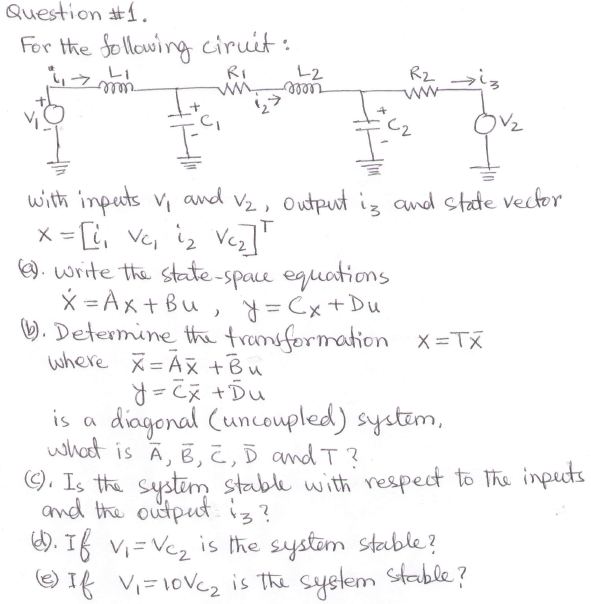 Question #1.
For the following ciruit:
i₁→ L1 R1 L2 R2 →i₃
i₂→
V₁ + + C₁ - + C₂ - V₂
with inputs v₁ and v₂, output i₃ and state vector
x = [i₁ Vc₁ i₂ Vc₂]ᵀ
(a). write the state-space equations
ẋ = Ax + Bu , y = Cx + Du
(b). Determine the transformation x = Tx̄
where x̄ = Āx̄ + B̄u
y = C̄x̄ + D̄u
is a diagonal (uncoupled) system,
what is Ā, B̄, C̄, D̄ and T?
(c). Is the system stable with respect to the inputs
and the output i₃?
(d). If V₁ = Vc₂ is the system stable?
(e) If V₁ = 10Vc₂ is the system stable?